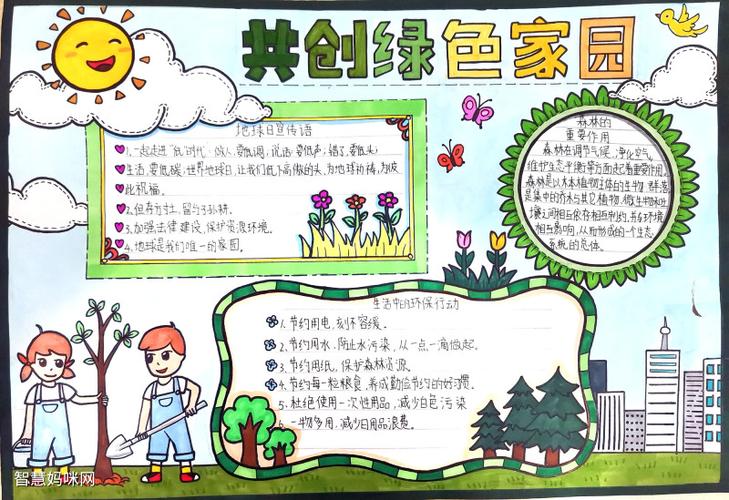 共创绿色家园
地球日宣传语
1.一起走进"低"时代:做人,要低调;说话,要低声;错了,要低头;
生活,要低碳;世界地球日,让我们低下高傲的头,为地球祈祷,为彼
此祝福。
2.但存方寸土,留与子孙耕。
3.加强法律建设,保护资源环境。
4.地球是我们唯一的家园。
森林的
重要作用
森林在调节气候、净化空气、
维护生态平衡等方面起着重要作用。
森林是以木本植物为主体的生物群落,
是集中的乔木与其它植物、微生物和土
壤之间相互依存相互制约,并与环境
相互影响,从而形成的一个生态
系统的总体。
生活中的环保行动
1.节约用电,刻不容缓。
2.节约用水,防止水污染,从一点一滴做起。
3.节约用纸,保护森林资源。
4.节约每一粒粮食,养成勤俭节约的好习惯。
5.杜绝使用一次性用品,减少白色污染
6.一物多用,减少日用品浪费。
智慧妈咪网